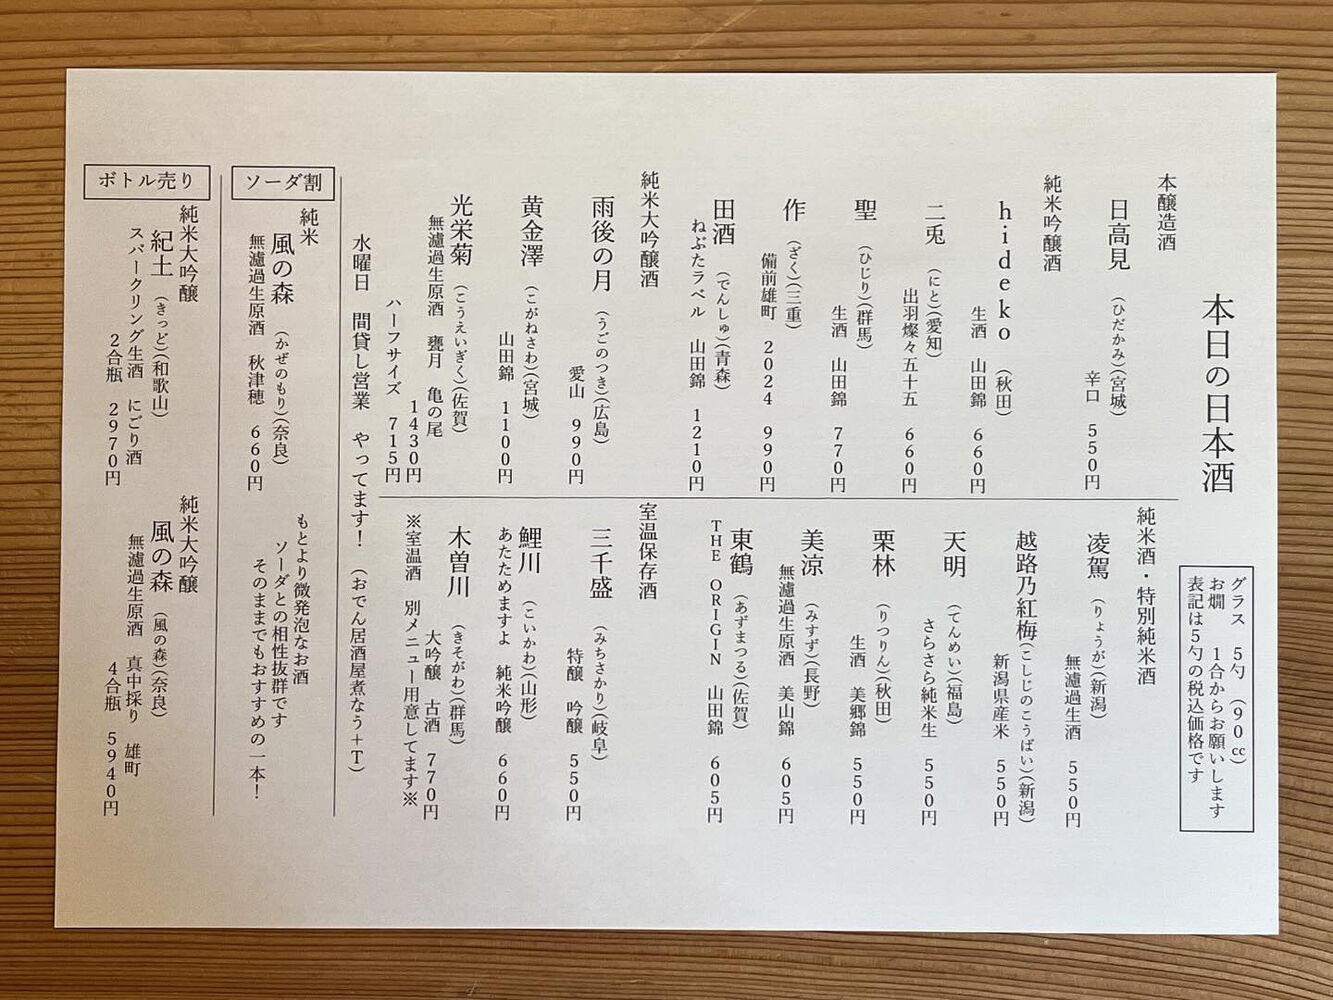 本日の日本酒
グラス　5勺　(90㏄)
お燗　1合からお願いします
表記は5勺の税込価格です
本醸造酒
日高見　(ひだかみ)(宮城)
辛口　550円
純米吟醸酒
hideko　(秋田)
生酒　山田錦　660円
二兎　(にと)(愛知)
出羽燦々五十五　660円
聖　(ひじり)(群馬)
生酒　山田錦　770円
作　(ざく)(三重)
備前雄町　2024　990円
田酒　(でんしゅ)(青森)
ねぶたラベル　山田錦　1210円
純米大吟醸酒
雨後の月　(うごのつき)(広島)
愛山　990円
黄金澤　(こがねさわ)(宮城)
山田錦　1100円
光栄菊　(こうえいぎく)(佐賀)
無濾過生原酒　甕月　亀の尾
1430円
ハーフサイズ　715円
純米酒・特別純米酒
凌駕　(りょうが)(新潟)
無濾過生酒　550円
越路乃紅梅(こしじのこうばい)(新潟)
新潟県産米　550円
天明　(てんめい)(福島)
さらさら純米生　550円
栗林　(りつりん)(秋田)
生酒　美郷錦　550円
美涼　(みすず)(長野)
無濾過生原酒　美山錦　605円
東鶴　(あずまつる)(佐賀)
THE ORIGIN　山田錦　605円
室温保存酒
三千盛　(みちさかり)(岐阜)
特醸　吟醸　550円
鯉川　(こいかわ)(山形)
あたためますよ　純米吟醸　660円
木曽川　(きそがわ)(群馬)
大吟醸　古酒　770円
※室温酒　別メニュー用意してます※
水曜日　間貸し営業　やってます！　(おでん居酒屋煮なう＋T)
ソーダ割
純米
風の森　(かぜのもり)(奈良)
無濾過生原酒　秋津穂　660円
もとより微発泡なお酒
ソーダとの相性抜群です
そのままでもおすすめの一本！
ボトル売り
純米大吟醸
紀土　(きっど)(和歌山)
スパークリング生酒　にごり酒
2合瓶　2970円
純米大吟醸
風の森　(風の森)(奈良)
無濾過生原酒　真中採り　雄町
4合瓶　5940円